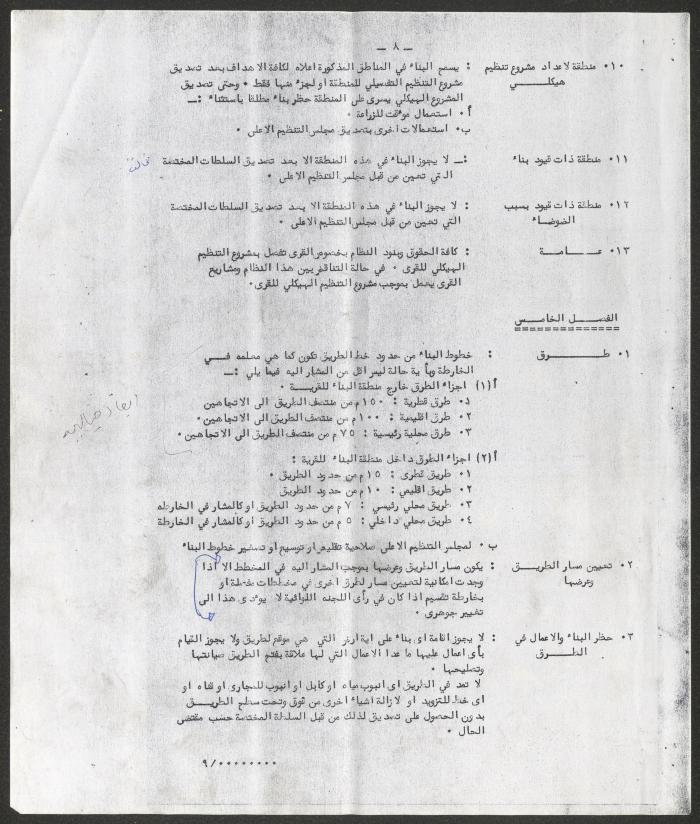 — ٨ —
١٠٠ منطقة لاعداد مشروع تنظيم هيكلـــــي : يسمح البناء في المناطق المذكورة اعلاه لكافة الاهداف بعد تصديق
مشروع التنظيم التفصيلي للمنطقة او لجزء منها فقط ٠ وحتى تصديق
المشروع الهيكلي يسرى على المنطقة حظر بناء مطلقا باستثناء :ــ
أ٠ استعمال موءقت للزراعة ٠
ب٠ استعمالات اخرى بتصديق مجلس التنظيم الاعلى ٠
١١٠ منطقة ذات قيود بناء :ــ لا يجوز البناء في هذه المنطقة الا بعد تصديق السلطات المختصة
التي تعين من قبل مجلس التنظيم الاعلى ٠
١٢٠ منطقة ذات قيود بسبب الضوضاء : لا يجوز البناء في هذه المنطقة الا بعد تصديق السلطات المختصة
التي تعين من قبل مجلس التنظيم الاعلى ٠
١٣٠ عـــامـــة : كافة الحقوق وبنود النظام بخصوص القرى تفصل بمشروع التنظيم
الهيكلي للقرى ٠ في حالة التناقض بين هذا النظام ومشاريع
القرى يعمل بموجب مشروع التنظيم الهيكلي للقرى٠
الفصـــل الخامـــس
==============
٠١ طـــــرق : خطوط البناء من حدود خط الطريق تكون كما هي معلمه فـــي
الخارطة وبأية حالة ليس اقل من المشار اليه فيما يلي :ــ
أ(١) اجزاء الطرق خارج منطقة البناء للقريـــة ٠
٠١ طرق قطرية : ١٥٠ م من منتصف الطريق الى الاتجاهين
٠٢ طرق اقليمية : ١٠٠ م من منتصف الطريق الى الاتجاهين٠
٠٣ طرق محلية رئيسية : ٧٥ م من منتصف الطريق الى الاتجاهين ٠
أ(٢) اجزاء الطرق داخل منطقة البناء للقرية :
٠١ طريق قطرى : ١٥ م من حدود الطريق ٠
٠٢ طريق اقليمي : ١٠ م من حدود الطريق
٠٣ طريق محلي رئيسي : ٧ م من حدود الطريق او كالمشار في الخارطه
٠٤ طريق محلي داخلي : ٥ م من حدود الطريق او كالمشار في الخارطة
ب٠ لمجلس التنظيم الاعلى صلاحية تقليص او توسيع او تصغير خطوط البناء
٠٢ تعيين مسار الطريـــق وعرضها : يكون مسار الطريق وعرضها بموجب المشار اليه في المخطط الا اذا
وجدت امكانية لتعيين مسار لطرق اخرى في مخططات مفصلة او
بخارطة تقسيم اذا كان في رأى اللجنه اللوائية لا يوءدى هذا الى
تغيير جوهرى ٠
٠٣ حظر البناء والاعمال في الطـــرق : لا يجوز اقامة اى بناء على اية ارض التي هي موقع لطريق ولا يجوز القيام
بأى اعمال عليها ما عدا الاعمال التي لها علاقة بفتح الطريق صيانتها
وتصليحها ٠
لا تمد في الطريق اى انبوب مياه او كابل او انبوب للمجارى او قناه او
اى خط للتزويد او لازالة اشياء اخرى من فوق وتحت سطح الطريـــق
بدون الحصول على تصديق لذلك من قبل السلطة المختصة حسب مقتضى
الحال ٠
٩/٠٠٠٠٠٠٠٠٠